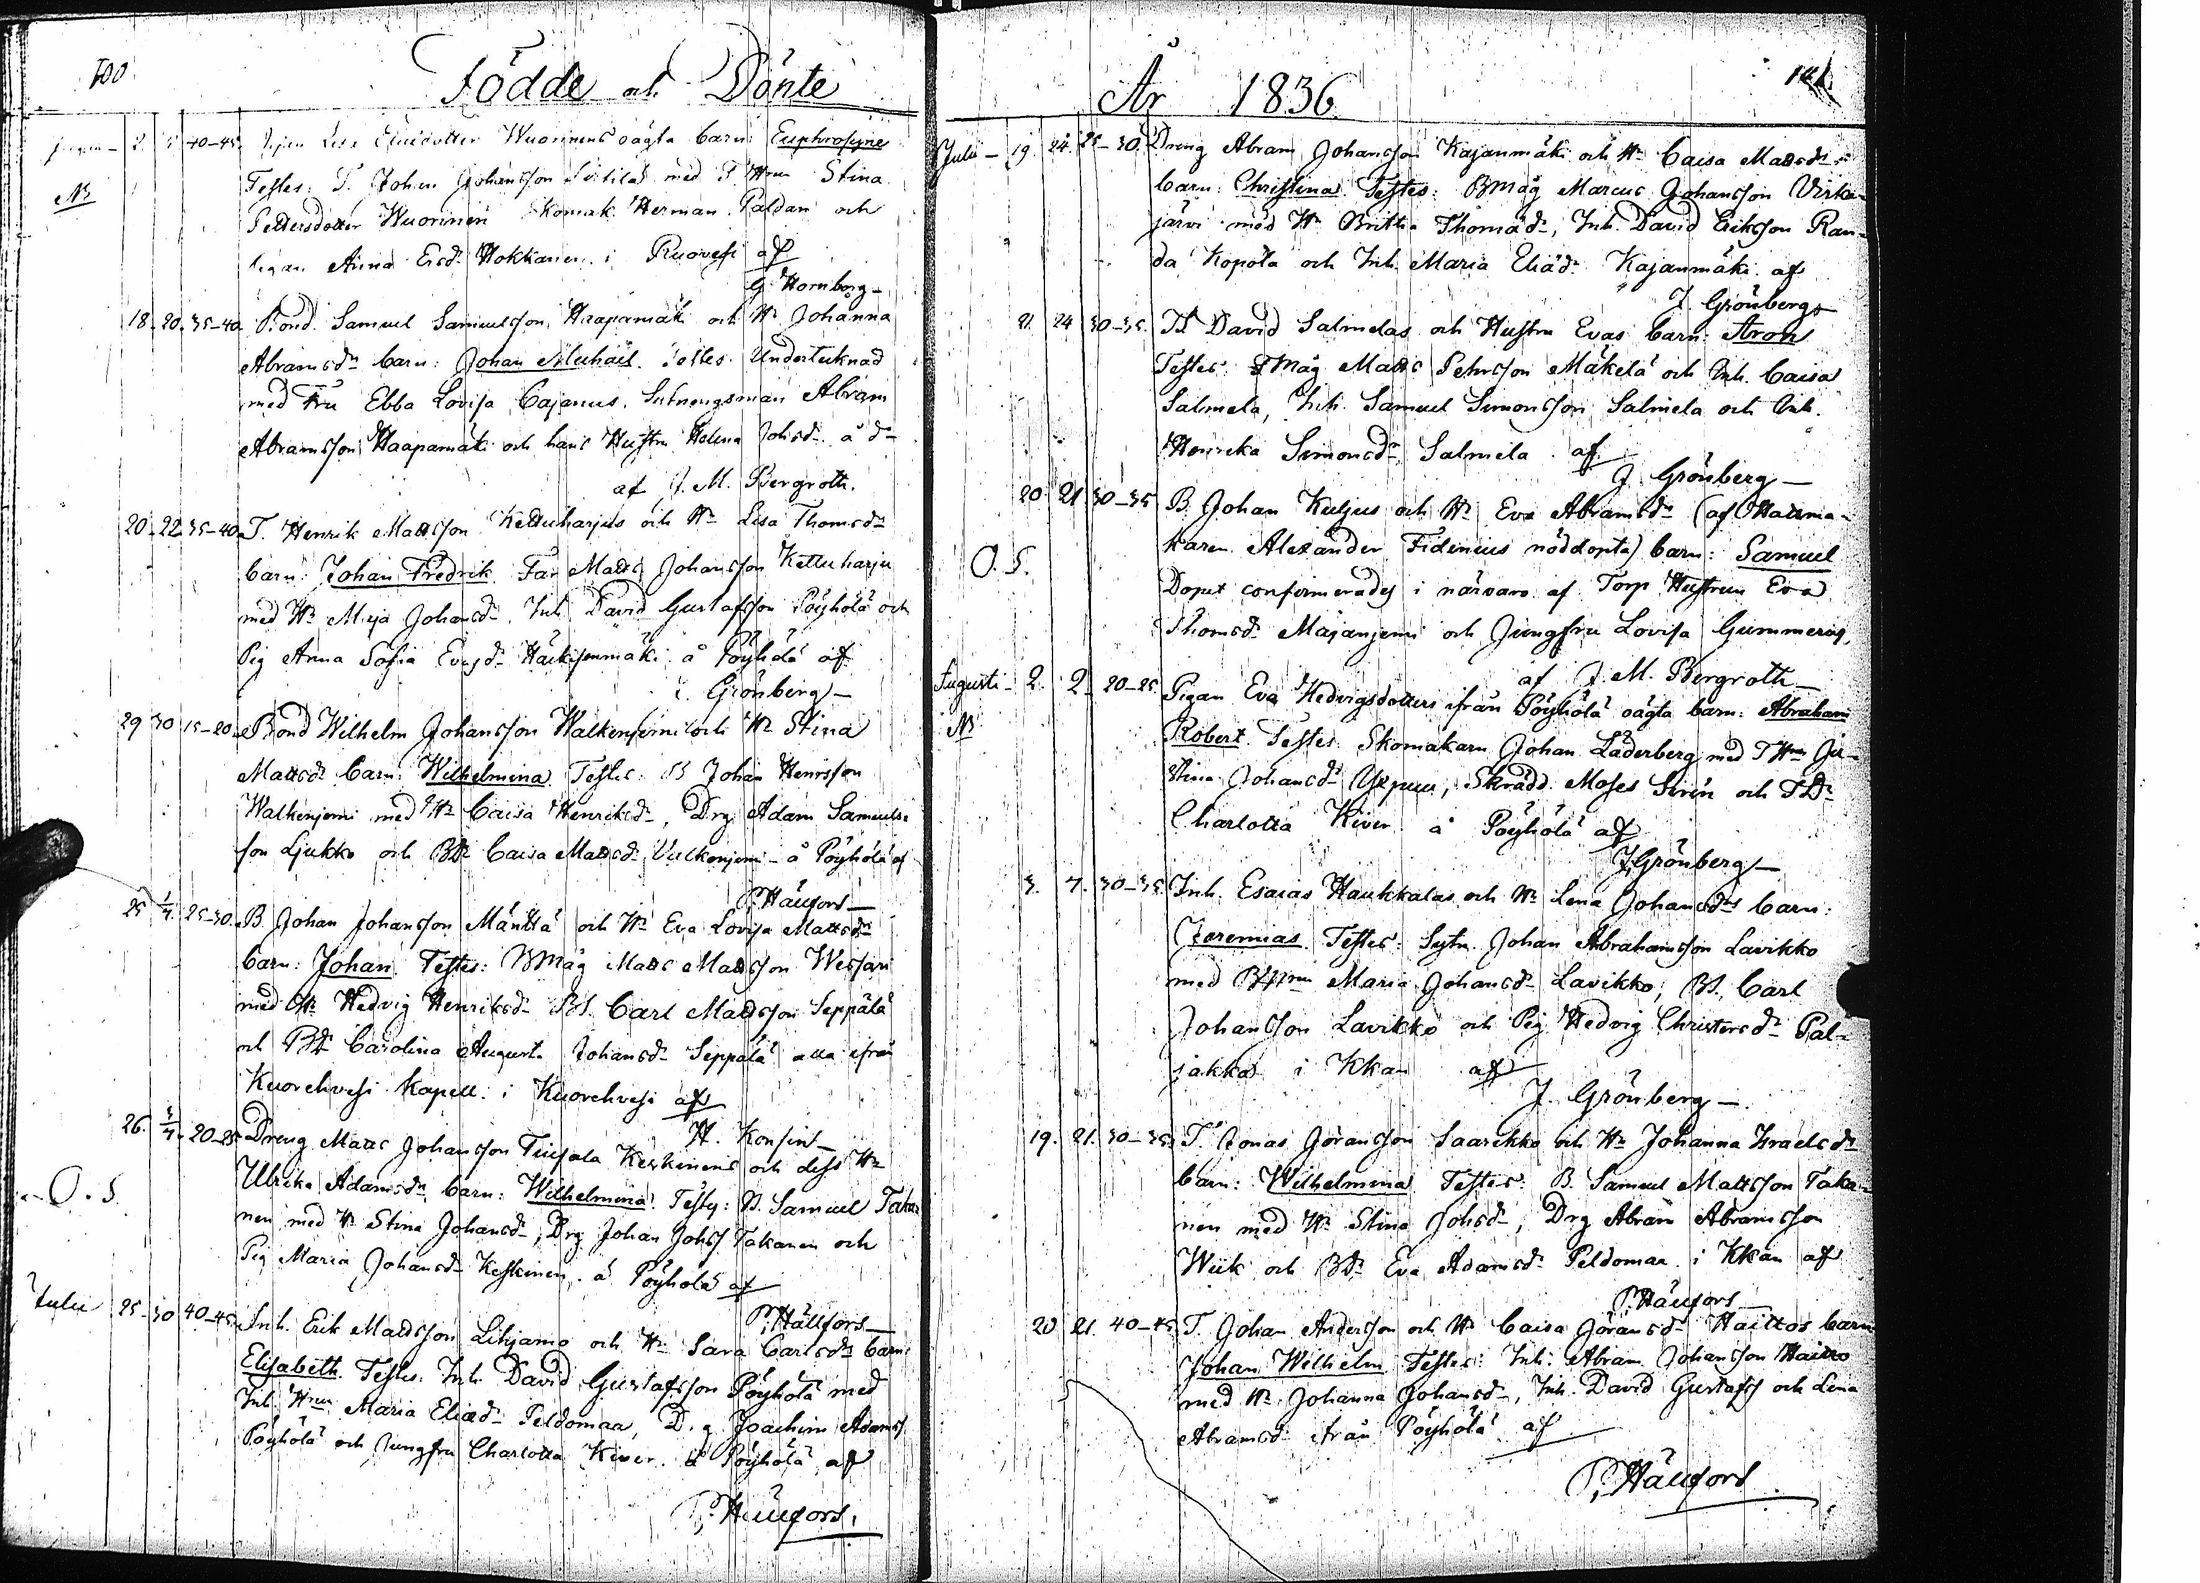 100
Födde och Döpte
2 5 40–45. Pigan Lisa Wuorinens oägta barn: Euphrosyne
Testes: T. Johan Johansson med T. Hrun Stina
Pettersdotter Wuorinen Skomak. Herman Paldan och
Pigan Anna Ersdr Hokkanen i Ruovesi af
G. Hornborg–
18. 20. 35–40 Bond. Samuel Samuelsson Haapamäki och Hr Johanna
Abramsdr barn: Johan Michaël. Testes. Undertecknad
med Fru Ebba Lovisa Cajanus. Abram
Abramsson Haapamäki och hans Hustru Helena Johsdr å dr
af J. M. Bergroth.
20. 22. 35–40. T. Henrik Mattsson Kettuharjus och Hr Lisa Thomsdr
barn: Johan Fredrik. Matts Johansson Kettuharju
med Hr Maja Johansdr. Inh. David Gustafsson Pöyhölä och
Pig Anna Sofia å Pöyhölä af
J. Grönberg–
29 30 15–20. Bond Wilhelm Johansson Walkenjemi och Hr Stina
Mattsdr barn: Wilhelmina Testes: B Johan Henrsson
Walkenjemi med Hr Caisa Henriksdr, Drg Adam Samuels-
son Ljukko och BDr Caisa Mattsdr Valkenjemi – å Pöyhölä af
P. Hällfors–
25 1/7. 25–30. B Johan Johansson Mänttä och Hr Eva Lovisa Mattsdr
barn: Johan. Testes: BMåg Matts Mattsson Wessari
med Hr Hedvig Henriksdr BS. Carl Mattsson Seppälä
och BDr Carolina Augusta Johansdr Seppälä alla ifrån
Kuorehvesi kapell: i Kuorehvesi af
H. Konsin–
26. 3/7. 20–25 Dreng Matts Johansson Keskinens och dess Hr
O. S. Ulrika Adamsdr barn: Wilhelmina. Testes: B. Samuel Taka-
nen med Hr Stina Johansdr, Drg Johan Johss. Takanen och
Pig Maria Johansdr Keskinen. å Pöyhölä af
P. Hällfors–
Julii 25–30 40–45. Inh. Erik Mattsson Lihjamo och Hr Sara Carlsdrs barn:
Elisabeth. Testes. Inh. David Gustafsson Pöyhölä med
Inh. Hrun Maria Eliædr Peldomaa, Joachim Adamss.
Pöyhölä och Jungfru Charlotta Kiver. å Pöyhölä af
P. Hällfors.
År 1836
Julii – 19. 24. 25–30. Dreng Abram Johansson Kajanmäki och Hr Caisa Mattsdrs
barn: Christina. Testes: BMåg Marcus Johansson Virka-
järvi med Hr Britha Thomædr, Inh. David Eriksson Ran-
da Kopola och Inh. Maria Eliædr Kajanmäki af
J. Grönberg
21. 24 30–35. David Salmelas och Hustru Evas barn: Aron
Testes: Måg Matts Pehrsson Mäkelä och Inh. Caisa
Salmela, Inh. Samuel Simonsson Salmela och Inh.
Henrika Simonsdr Salmela af
J. Grönberg–
20. 21 30–35 B. Johan Kuljus och Hr Eva Abramsdr (af Hattma-
O. S. karen Alexander Fidenius nöddöpta) barn: Samuel
Dopet confirmerades i närvaro af Torp Hustrun Eva
Thomsdr Majanjemi och Jungfru Lovisa Gummerus,
af J. M. Bergroth–
Augusti – 2. 2 20–25 Pigan Eva Hedvigsdotters ifrån Pöyhölä oägta barn: Abraham
Robert. Testes. Skomakarn Johan Läderberg med THrun
Stina Johansdr Skrädd. Moses Sirén och TDr
Charlotta Kiver å Pöyhölä af
J. Grönberg–
3. 7. 30–35 Inh. Esaias Haukkalas och Hr Lena Johansdrs barn:
Jeremias. Testes: Sytn. Johan Abrahamsson Lavikko
med BHrun Maria Johansdr Lavikko, BS. Carl
Johansson Lavikko och Pig Hedvig Christersdr Pal-
jakka i Kkan af
J. Grönberg–.
19. 21. 30–35. T. Jonas Göransson Saarikko och Hr Johanna Israelsdr
barn: Wilhelmina Testes: B. Samuel Mattsson Taka-
nen med Hr Stina Johsdr, Drg Abram Abramsson
Wiik och BDr Eva Adamsdr Peldomaa i Kkan af
P. Hällfors–
20 21. 40–45 T. Johan Andersson och Hr Caisa Göransdr Haittos barn
Johan Wilhelm Testes: Inh: Abram Johansson Haitto
med Hr Johanna Johansdr, Inh. David Gustafss och Lena
Abramsdr ifrån Pöyhölä af
P. Hällfors